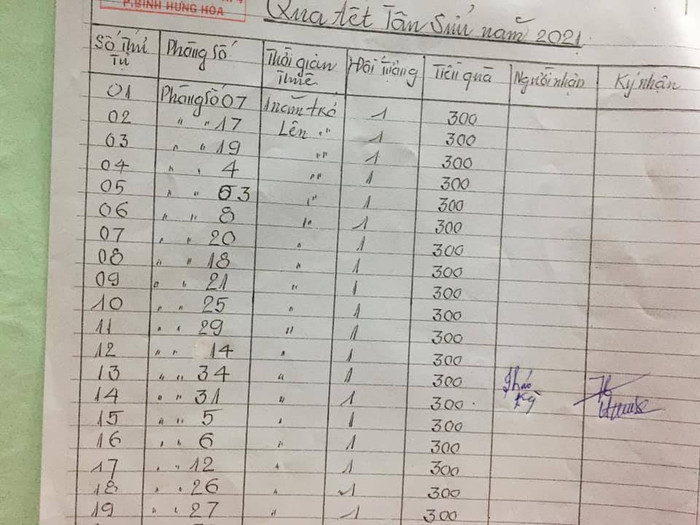 P.BÌNH HƯNG HÒA
Quà tết Tân Sửu năm 2021
Số Thứ Tự Phòng Số Thời gian Thuê Đối tượng Tiền quà Người nhận Ký nhận
01 Phòng số 07 1 năm trở Lên 1 300
02 " " 17 " 1 300
03 " " 19 " 1 300
04 " " 4 " 1 300
05 " " 63 " 1 300
06 " " 8 " 1 300
07 " " 20 " 1 300
08 " " 18 " 1 300
09 " " 21 " 1 300
10 " " 25 " 1 300
11 " " 29 " 1 300
12 " " 14 " 1 300
13 " " 34 " 1 300
14 " " 31 " 1 300
15 " " 5 " 1 300
16 " " 6 " 1 300
17 " " 12 " 1 300
18 " " 26 " 1 300
19 " " 27 " 1 300